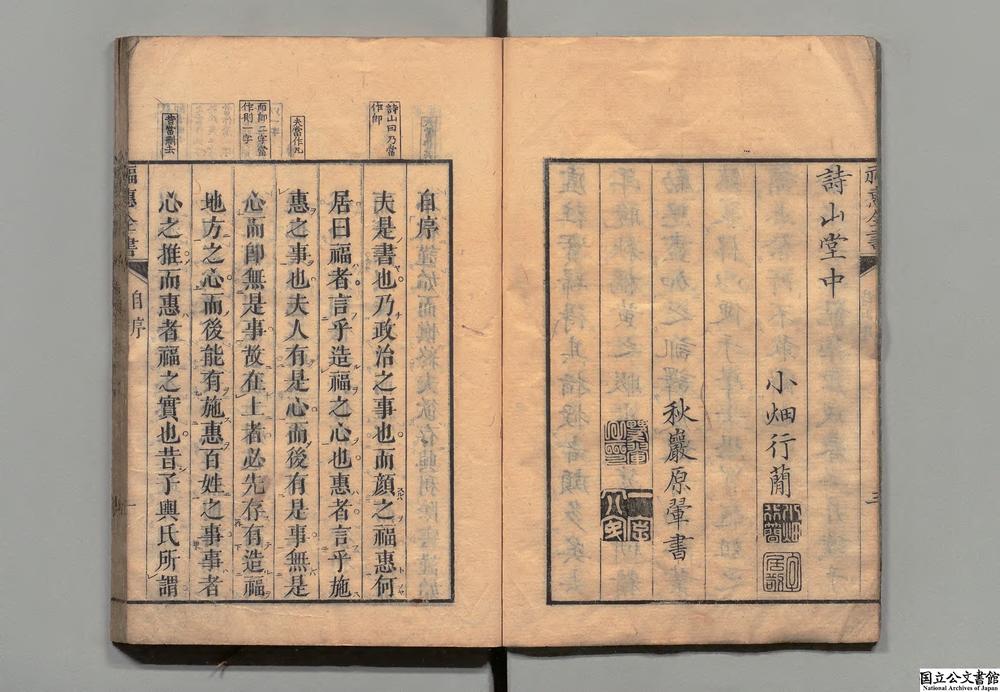 詩山堂中
小畑行蕳
秋巖原翬書
詩山曰乃當
作即
夫當作凡
而即二字當
作則一字
昔當刪去
自序
夫是書也乃政治之事也而顔之福惠何
居曰福者言乎造福之心也惠者言乎施
惠之事也夫人有是心而後有是事無是
心而卽無是事故在上者必先存有造福
地方之心而後能有施惠百姓之事事者
心之推而惠者福之實也昔子輿氏所謂
福惠全書 自序 一
国立公文書館
National Archives of Japan